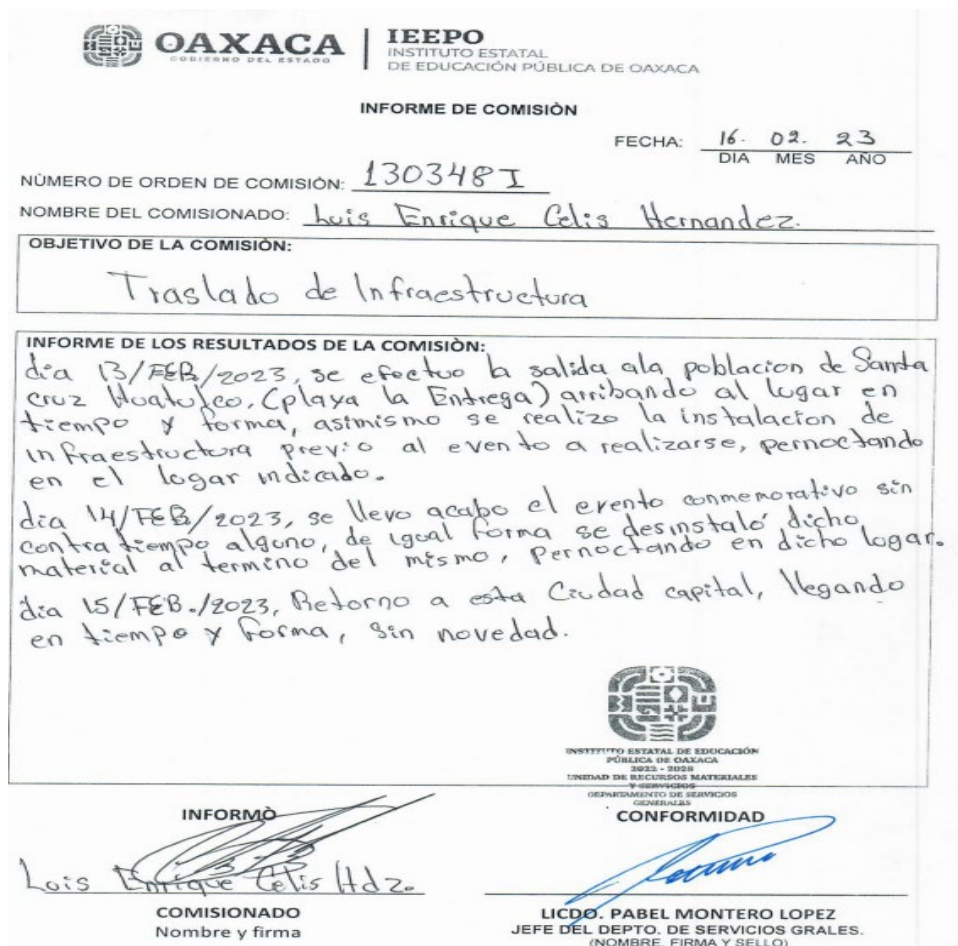 OAXACA
GOBIERNO DEL ESTADO
IEEPO
INSTITUTO ESTATAL
DE EDUCACIÓN PÚBLICA DE OAXACA
INFORME DE COMISIÒN
FECHA: 16. 02. 23
DIA MES AÑO
NÙMERO DE ORDEN DE COMISIÒN: 130348I
NOMBRE DEL COMISIONADO: Luis Enrique Celis Hernandez.
OBJETIVO DE LA COMISIÒN:
Traslado de Infraestructura
INFORME DE LOS RESULTADOS DE LA COMISIÒN:
dia 13/FEB/2023, se efectuo la salida ala poblacion de Santa
cruz Huatulco, (playa la Entrega) arribando al lugar en
tiempo y forma, asimismo se realizo la instalacion de
infraestructura previo al evento a realizarse, pernoctando
en el lugar indicado.
dia 14/FEB/2023, se llevo acabo el evento conmemorativo sin
contratiempo alguno, de igual forma se desinstaló dicho
material al termino del mismo, pernoctando en dicho lugar.
dia 15/FEB./2023, Retorno a esta Ciudad capital, llegando
en tiempo y forma, sin novedad.
INSTITUTO ESTATAL DE EDUCACIÓN
PÚBLICA DE OAXACA
2022 - 2028
UNIDAD DE RECURSOS MATERIALES
Y SERVICIOS
DEPARTAMENTO DE SERVICIOS
GENERALES
INFORMÒ
CONFORMIDAD
Luis Enrique Celis Hdz.
COMISIONADO
Nombre y firma
LICDO. PABEL MONTERO LOPEZ
JEFE DEL DEPTO. DE SERVICIOS GRALES.
(NOMBRE, FIRMA Y SELLO)